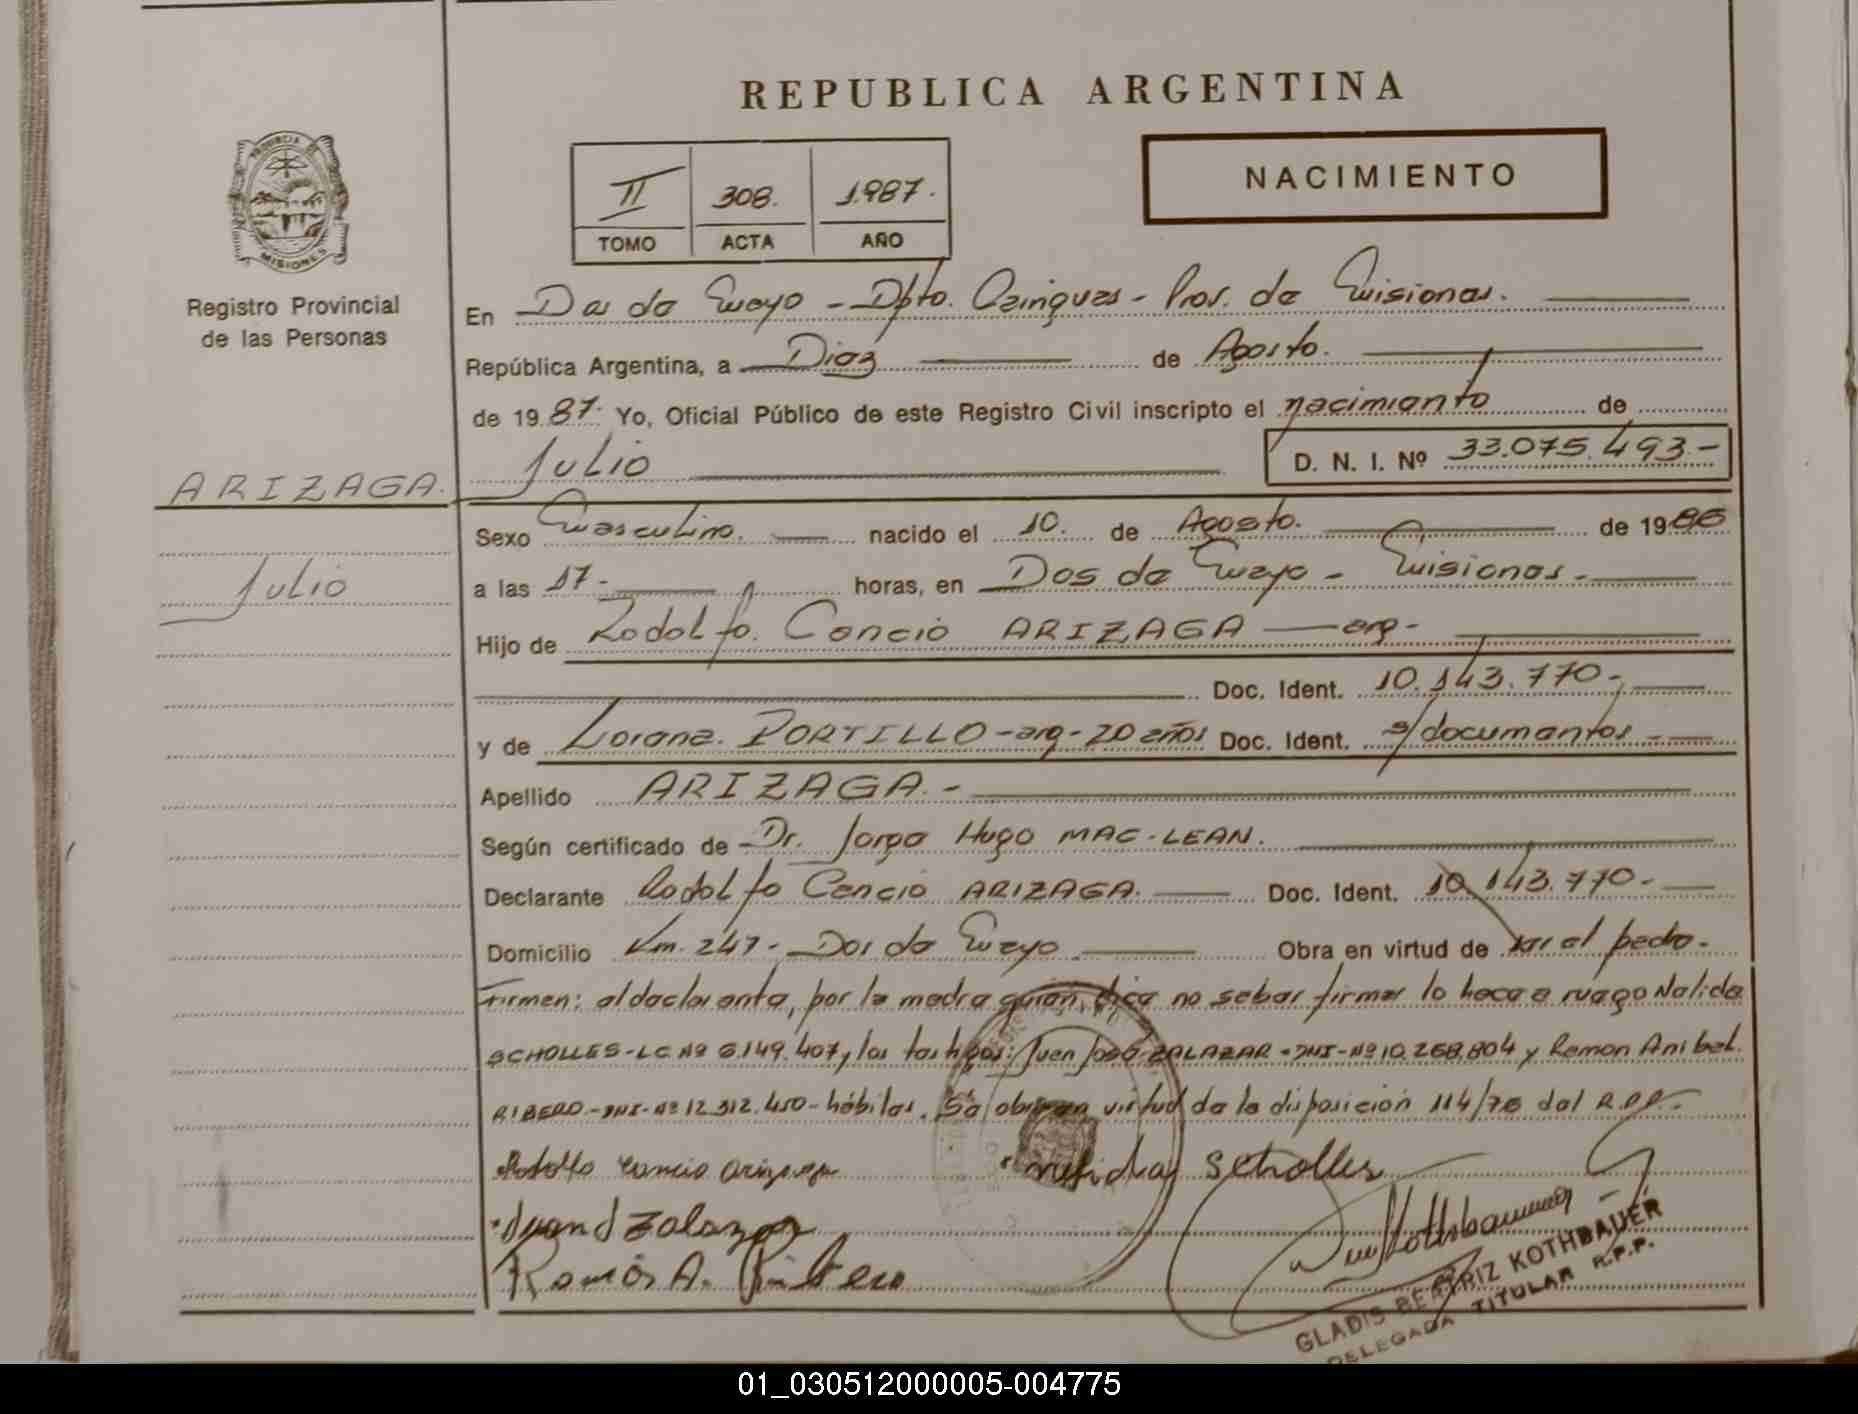 REPUBLICA ARGENTINA
NACIMIENTO
II 308. 1.987.
TOMO ACTA AÑO
PROVINCIA DE
MISIONES
Registro Provincial
de las Personas
En Dos de Mayo - Dpto. Cainguas - Prov. de Misiones.
República Argentina, a Diez de Agosto.
de 19 87. Yo, Oficial Público de este Registro Civil inscripto el nacimiento de
Julio
D. N. I. Nº 33.075.493.-
ARIZAGA.
Julio
Sexo Masculino. nacido el 10. de Agosto. de 19 86
a las 17- horas, en Dos de Mayo - Misiones -
Hijo de Rodolfo. Cancio ARIZAGA - arg -
Doc. Ident. 10.143.770-
y de Lorena. PORTILLO - arg - 20 años Doc. Ident. s/documentos -
Apellido ARIZAGA. -
Según certificado de Dr. Jorge Hugo MAC-LEAN.
Declarante Rodolfo Cancio ARIZAGA. Doc. Ident. 10.143.770-
Domicilio Km. 247- Dos de Mayo Obra en virtud de ser el padre.
Firman: el declarante, por la madre quien dice no saber firmar lo hace a ruego Nalida
SCHOLLES - LC. Nº 6.149.407, los testigos: Juan Jose ZALAZAR - DNI - Nº 10.268.804 y Ramon Anibal
RIBERO. - DNI - Nº 12.312.450 - hábiles. Se obra en virtud de la disposición 114/76 del R.P.P. -
Rodolfo Cancio Arizaga
Scholles
Juan J Zalazar
Ramón A.
Kothbauer
GLADIS BEATRIZ KOTHBAUER
DELEGADA TITULAR R.P.P.
01_030512000005-004775